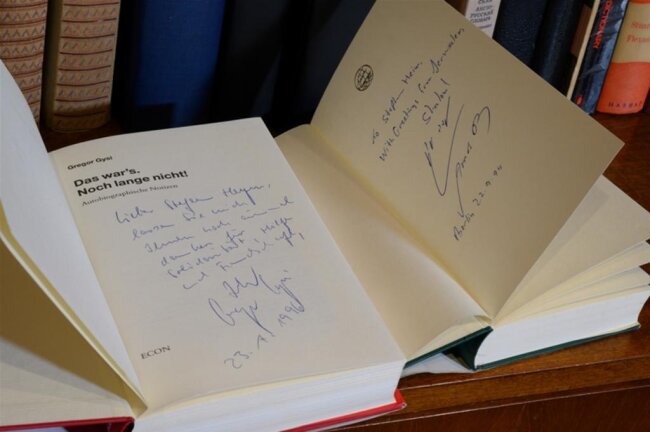 Gregor Gysi
Das war's.
Noch lange nicht!
Autobiographische Notizen
Lieber Stefan Heym,
lassen Sie mich
Ihnen noch einmal
danken für Hilfe
Solidarität
und Freundschaft,
Ihr
Gregor Gysi
23. 1. 1996
ECON
To Stephan Heim
With Greetings from Jerusalem
Shalom!
Berlin 20.9.94
АНГЛО-
РУССКИЙ
СЛОВАРЬ
DICTIONARY
HARRAP